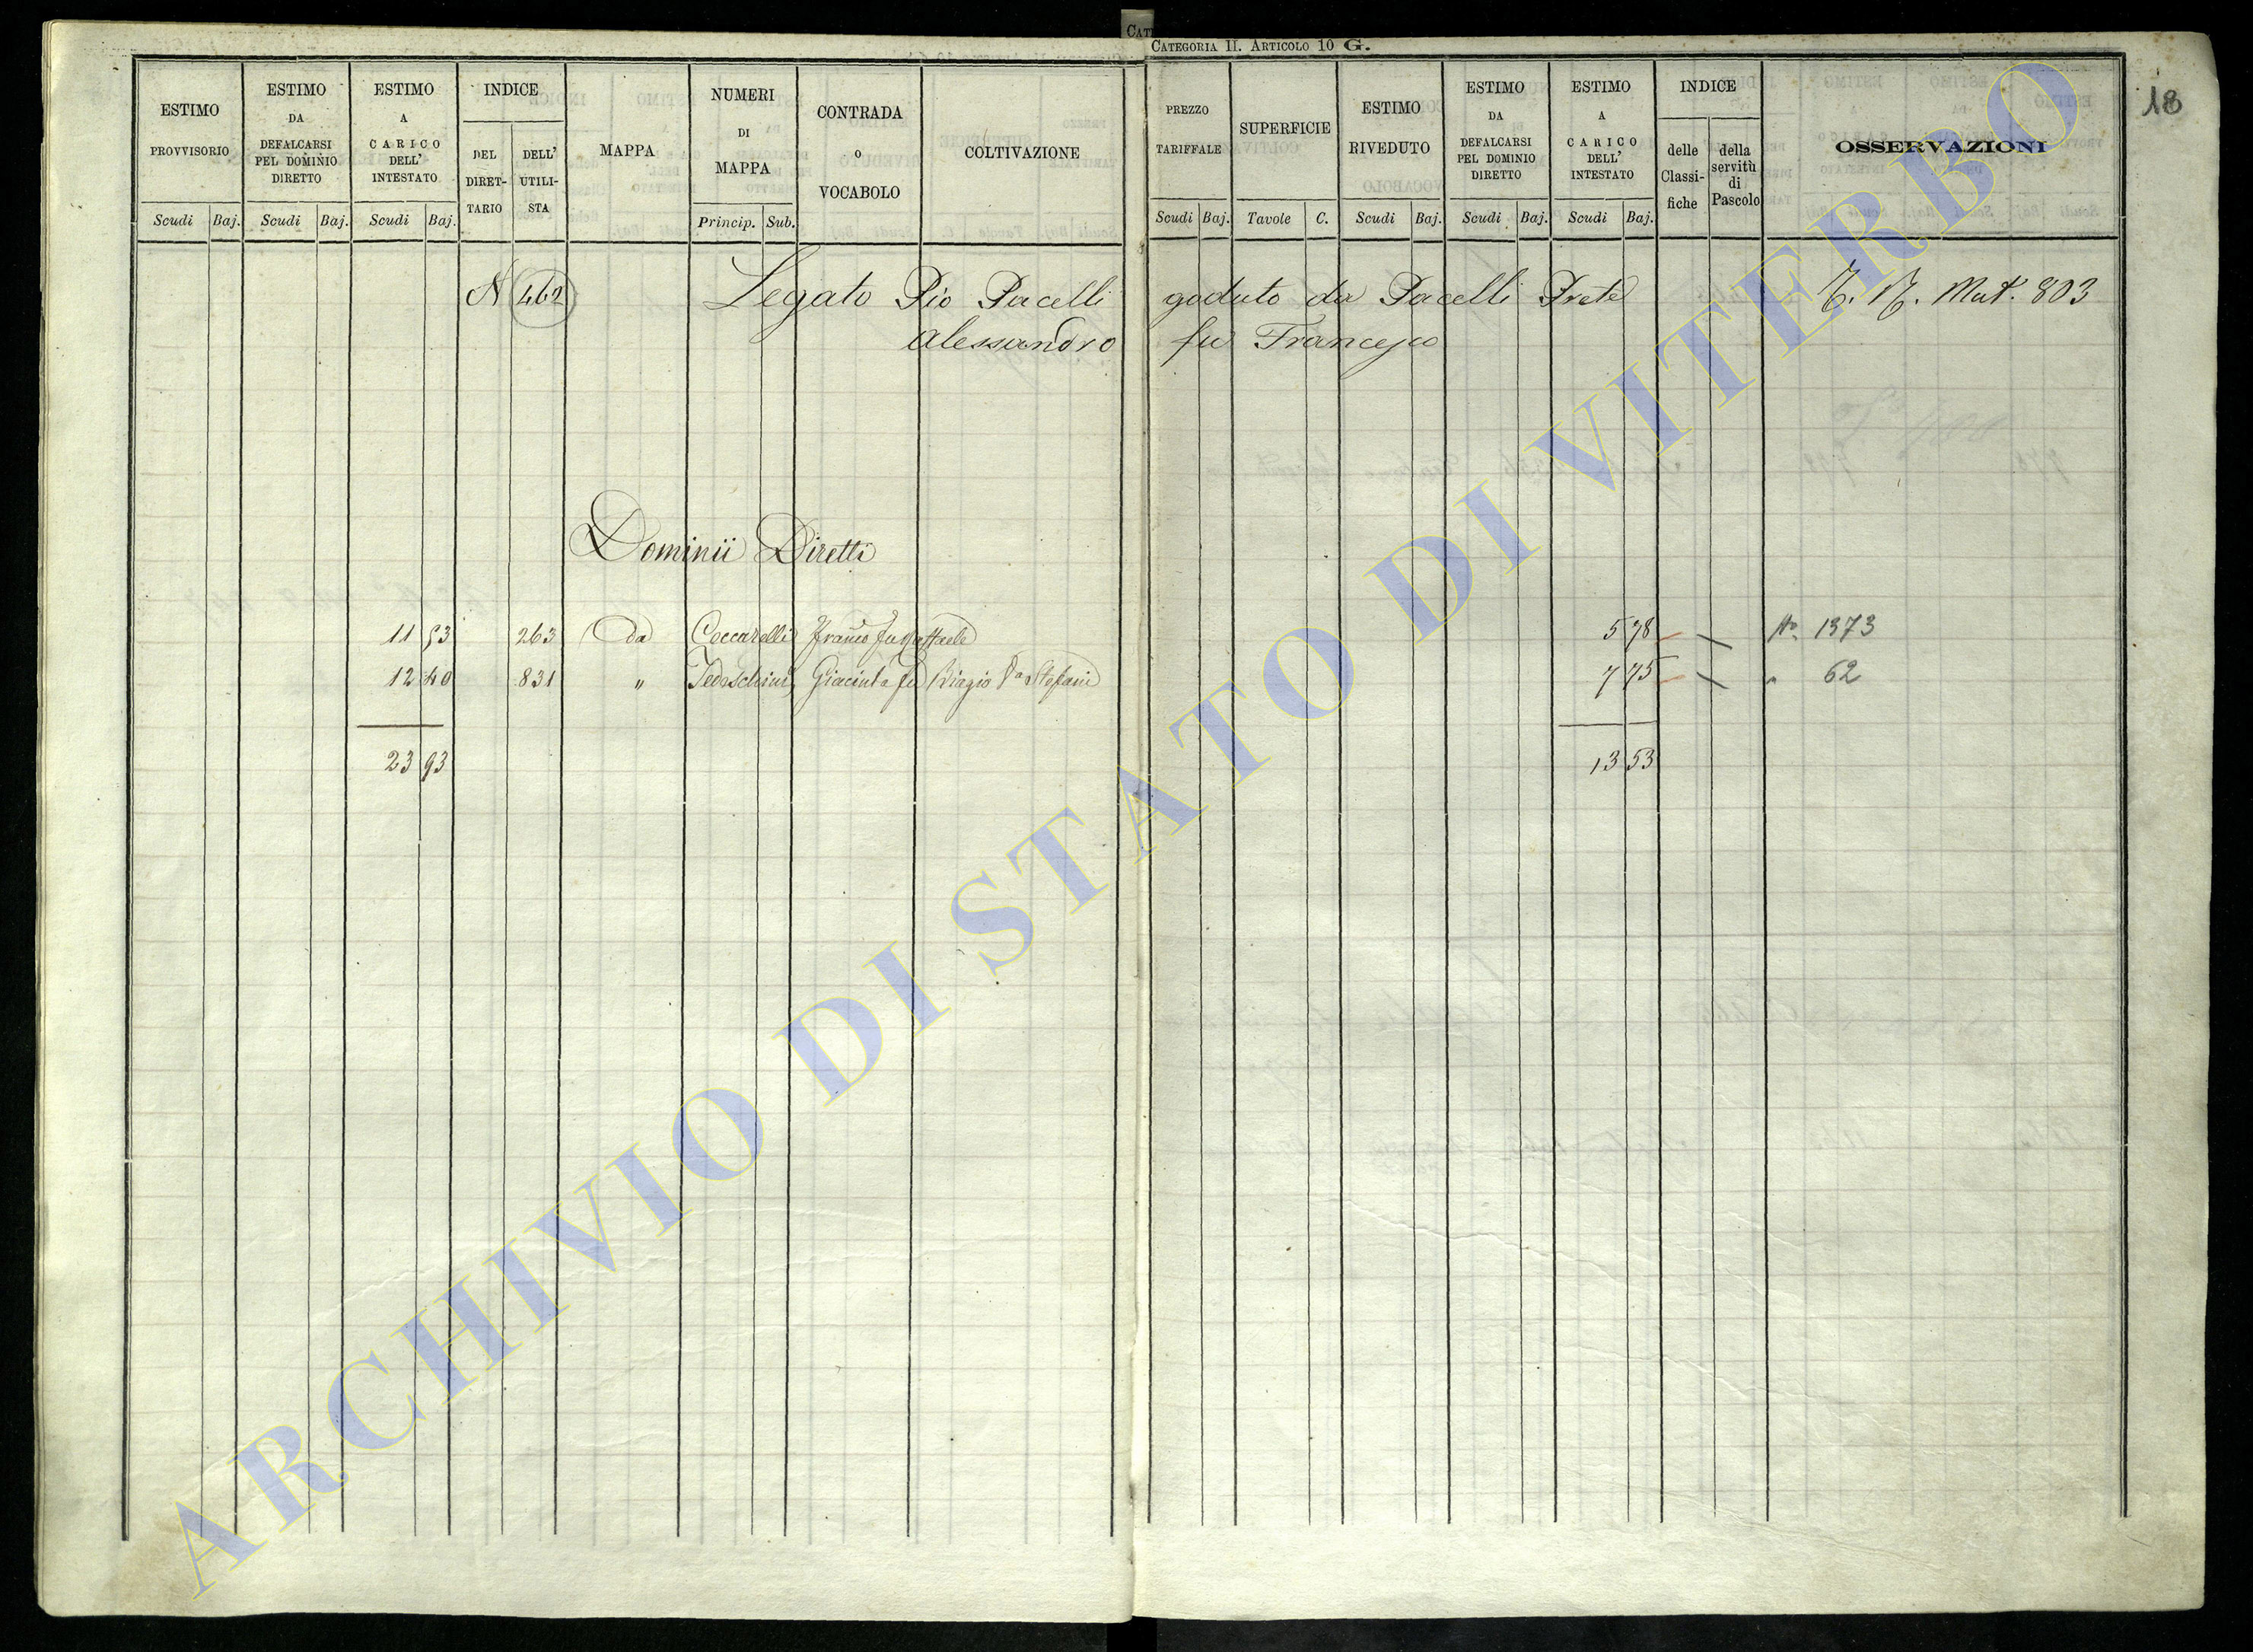 CATEGORIA II. ARTICOLO 10 G.
18
ESTIMO PROVVISORIO Scudi Baj.
ESTIMO DA DEFALCARSI PEL DOMINIO DIRETTO Scudi Baj.
ESTIMO A CARICO DELL' INTESTATO Scudi Baj.
INDICE DEL DIRETTARIO DELL' UTILISTA
MAPPA
NUMERI DI MAPPA Princip. Sub.
CONTRADA O VOCABOLO
COLTIVAZIONE
PREZZO TARIFFALE Scudi Baj.
SUPERFICIE Tavole C.
ESTIMO RIVEDUTO Scudi Baj.
ESTIMO DA DEFALCARSI PEL DOMINIO DIRETTO Scudi Baj.
ESTIMO A CARICO DELL' INTESTATO Scudi Baj.
INDICE delle Classifiche della servitù di Pascolo
OSSERVAZIONI
N 462 Legato Pio Pacelli goduto da Pacelli Prete Mat. 803
Alessandro fu Francesco
Dominii Diretti
11 53 263 da Ceccarelli Franco fu Raffaele 5 78 No. 1373
12 40 831 " Tedeschini Giacinta fu Biagio Stefani 7 75 " 62
23 93 13 53
ARCHIVIO DI STATO DI VITERBO